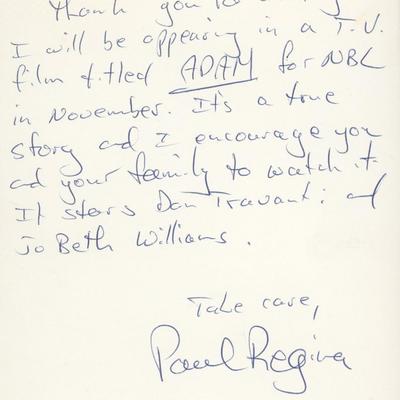 thank you
I will be appearing in a T.V.
film titled ADAM for NBC
in November. It's a true
story and I encourage you
and your family to watch it.
It stars Dan Travanti and
JoBeth Williams.
Take care,
Paul Regina